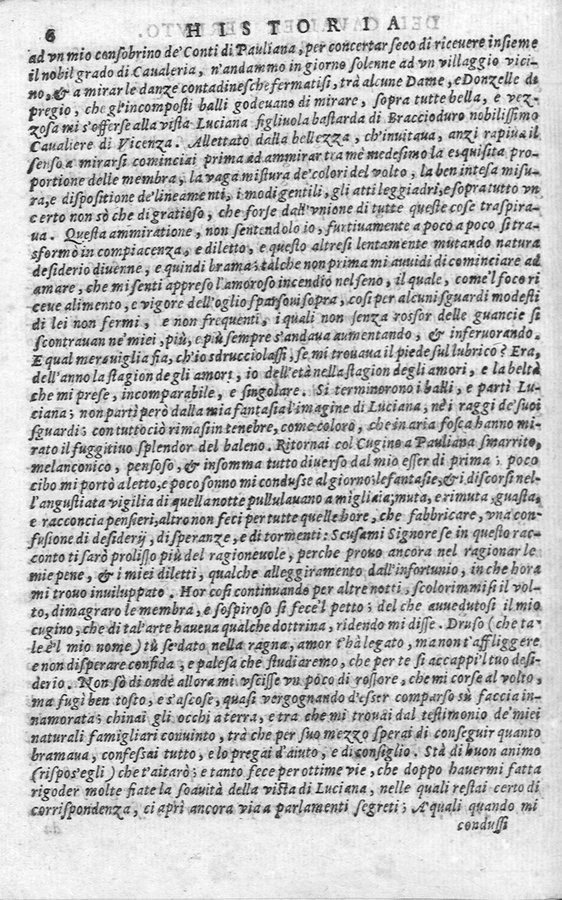 6 HISTORIA
ad vn mio consobrino de' Conti di Pauliana, per concertar seco di riceuere insieme
il nobil grado di Caualeria, n'andammo in giorno solenne ad vn villaggio vici-
no, & a mirar le danze contadinesche fermatisi, trà alcune Dame, e Donzelle di
pregio, che gl'incomposti balli godeuano di mirare, sopra tutte bella, e vez-
zosa mi s'offerse alla vista Luciana figliuola bastarda di Braccioduro nobilissimo
Caualiere di Vicenza. Allettato dalla bellezza, ch'inuitaua, anzi rapiua il
senso a mirarsi cominciai prima ad ammirar tra mè medesimo la esquisita pro-
portione delle membra, la vaga mistura de' colori del volto, la ben intesa misu-
ra, e dispositione de' lineamenti, i modi gentili, gli atti leggiadri, e sopra tutto vn
certo non sò che di gratioso, che forse dall'vnione di tutte queste cose traspira-
ua. Questa ammiratione, non sentendolo io, furtiuamente a poco a poco si tra-
sformò in compiacenza, e diletto, e questo altresi lentamente mutando natura
desiderio diuenne, e quindi brama; talche non prima mi auuidi di cominciare ad
amare, che mi senti appreso l'amoroso incendio nel seno, il quale, come'l foco ri
ceue alimento, e vigore dell'oglio sparsoui sopra, cosi per alcuni sguardi modesti
di lei non fermi, e non frequenti, i quali non senza rossor delle guancie si
scontrauan ne' miei, più, e più sempre s'andaua aumentando, & inferuorando.
E qual merauiglia fia, ch'io sdrucciolassi, se mi trouaua il piede sul lubrico? Era,
dell'anno la stagion degli amori, io dell'età nella stagion degli amori, e la beltà
che mi prese, incomparabile, e singolare. Si terminorono i balli, e partì Lu-
ciana; non partì però dalla mia fantasia l'imagine di Luciana, nè i raggi de' suoi
sguardi; con tuttociò rimasi in tenebre, come coloro, che in aria fosca hanno mi-
rato il fuggitiuo splendor del baleno. Ritornai col Cugino a Pauliana smarrito,
melanconico, pensoso, & insomma tutto diuerso dal mio esser di prima; poco
cibo mi portò a letto, e poco sonno mi condusse al giorno; le fantasie, & i discorsi nel-
l'angustiata vigilia di quella notte pullulauano a migliaia; muta, e rimuta, guasta,
e racconcia pensieri, altro non feci per tutte quelle hore, che fabbricare, vna con-
fusione di desiderij, di speranze, e di tormenti: Scusami Signore se in questo rac-
conto ti sarò prolisso più del ragioneuole, perche prouo ancora nel ragionar le
mie pene, & i miei diletti, qualche alleggiramento dall'infortunio, in che hora
mi trouo inuiluppato. Hor cosi continuando per altre notti, scolorimmisi il vol-
to, dimagraro le membra, e sospiroso si fece'l petto; del che auuedutosi il mio
cugino, che di tal'arte haueua qualche dottrina, ridendo mi disse. Druso (che ta-
le è'l mio nome) tù se' dato nella ragna, amor t'hà legato, ma non t'affliggere
e non disperare confida, e palesa che studiaremo, che per te si accappi'l tuo desi-
derio. Non sò di onde allora mi vscisse vn pòco di rossore, che mi corse al volto,
ma fugì ben tosto, e s'ascose, quasi vergognando d'esser comparso sù faccia in-
namorata; chinai gli occhi a terra, e tra che mi trouai dal testimonio de' miei
naturali famigliari conuinto, trà che per suo mezzo sperai di conseguir quanto
bramaua, confessai tutto, e lo pregai d'aiuto, e di consiglio. Stà di buon animo
(rispos'egli) che t'aitarò; e tanto fece per ottime vie, che doppo hauermi fatta
rigoder molte fiate la soauità della vista di Luciana, nelle quali restai certo di
corrispondenza, ci aprì ancora via a parlamenti segreti; A' quali quando mi
condussi